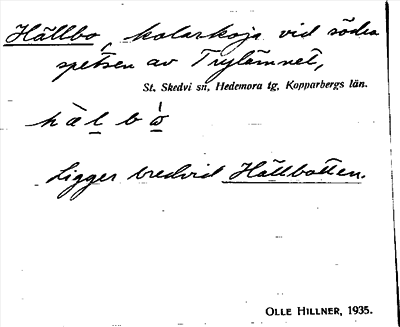 Hällbo, kolarkoja vid södra
spetsen av Trylämnet,
St. Skedvi sn, Hedemora tg, Kopparbergs län.
hälbò
Ligger bredvid Hällbotten.
OLLE HILLNER, 1935.